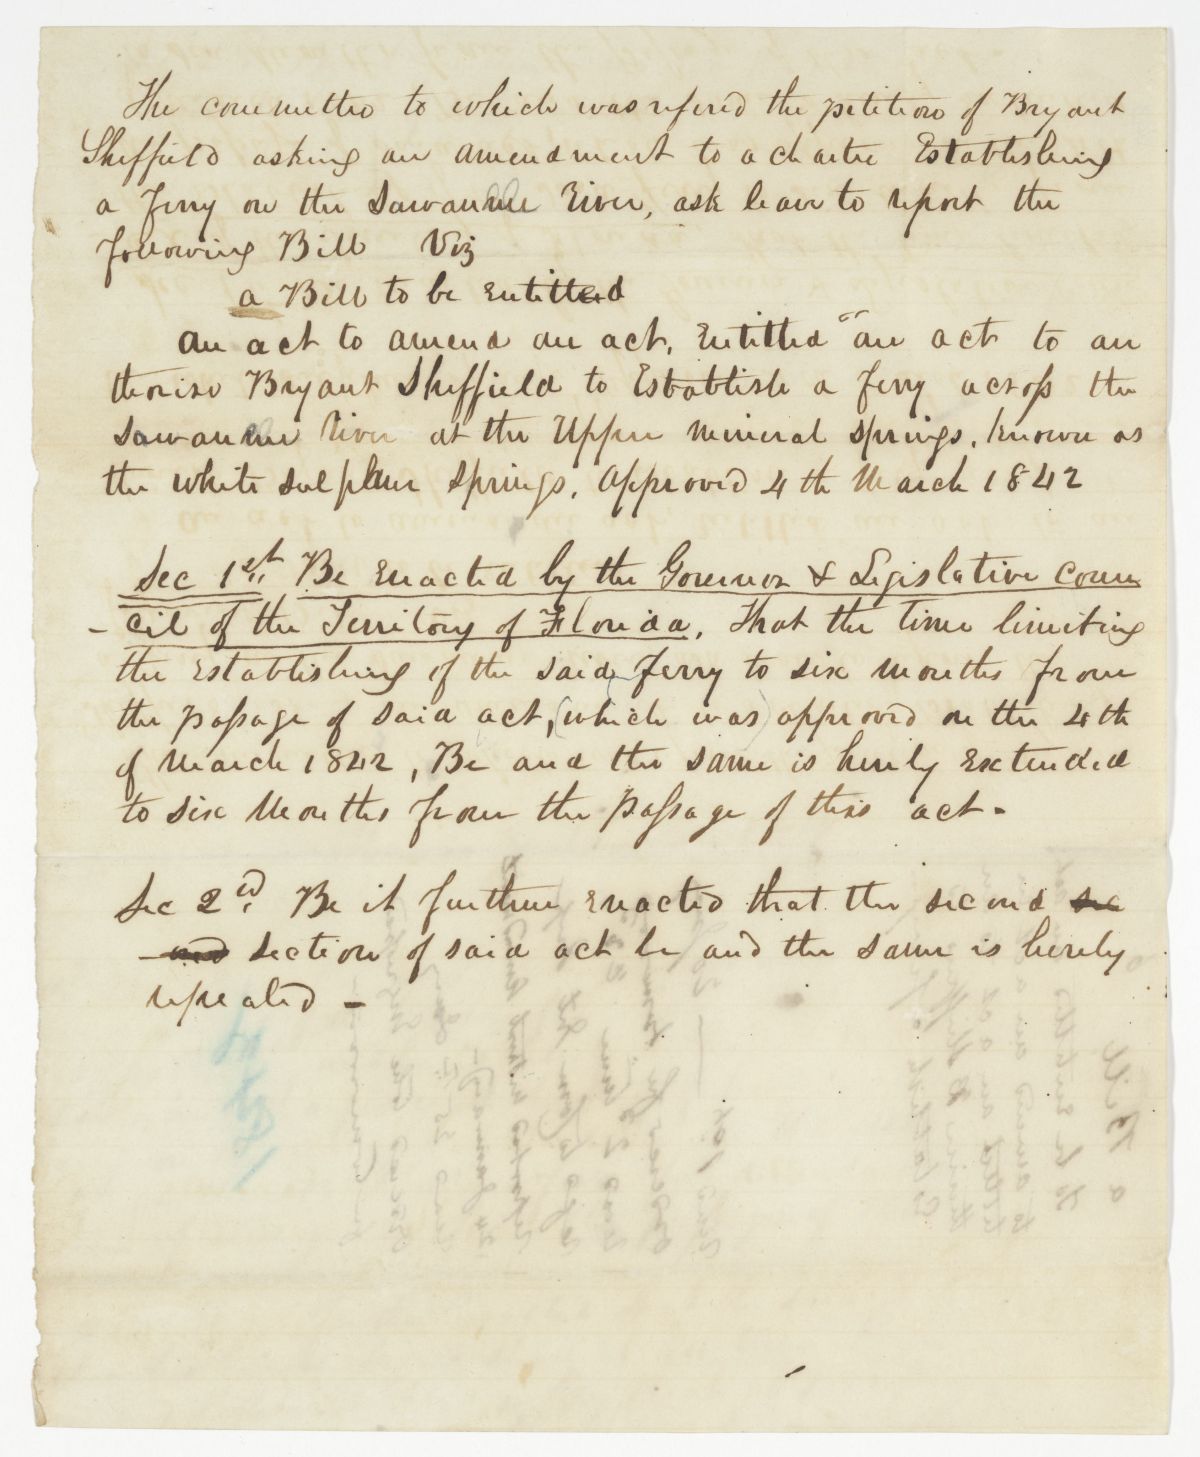 The committe to which was refered the petition of Bryant
Sheffield asking an amendment to a charter Establishing
a Ferry on the Suwannee River, ask leave to report the
following Bill Viz
a Bill to be Entitled
an act to amend an act, Entitled "an act to au
thorise Bryant Sheffield to Establish a Ferry across the
Suwannee River at the Upper mineral springs, known as
the white sulphur springs, approved 4th March 1842
Sec 1st. Be Enacted by the Governor & Legislative Coun
-cil of the Territory of Florida, That the time limiting
the Establishing of the said Ferry to six months from
the passage of said act, (which was) approved on the 4th
of March 1842, Be and the same is herely Extended
to six Months from the passage of this act -
Sec 2nd. Be it further Enacted that the second sec
ond section of said act be and the same is hereby
repealed -